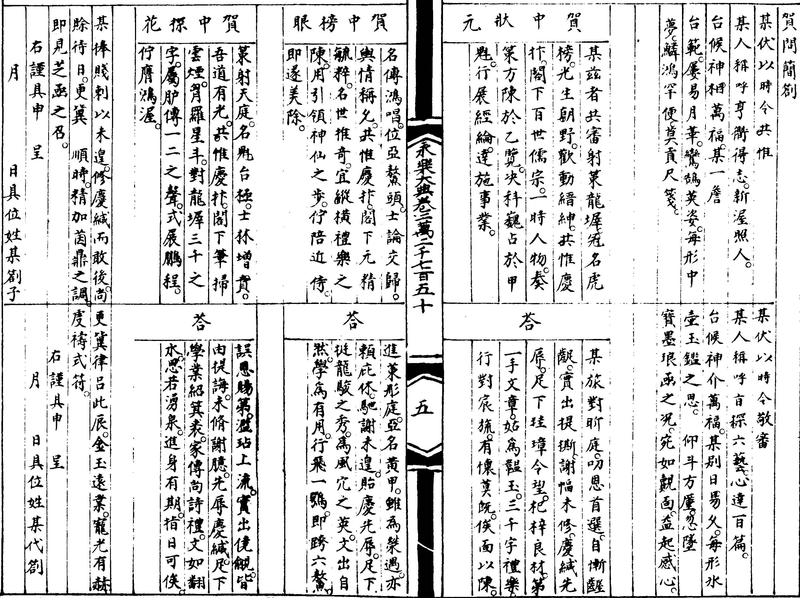 賀問簡劄
某伏以時令共惟
某人稱呼亨衢得志。新渥照人。
台候神相萬福。某一詹
台範。屢易月華。鸞鵠英姿。每形中
夢。鱗鴻罕便。莫貢尺箋。
賀中狀元
某茲者共審射策龍墀。冠名虎
榜。光生朝野。歡動縉紳。共惟慶
抃。閤下百世儒宗。一時人物。奏
策方陳於乙覽。决科巍占於甲
魁。行展經綸。達施事業。
某伏以時令敬審
某人稱呼百探六藝。心達百篇。
台候神介萬福。某別日易久。每形氷
壺玉鑑之思。仰斗方厪。忽墜
寶墨琅函之况。宛如覿面。益起感心。
荅
某旅對昕庭。叨恩首選。自慚
覷。實出提撕。謝幅未修。慶緘先
辱。足下珪璋令望。杞梓良材。第
一手文章。姤為韞玉。三千字禮樂。
行對宸旒。有懷莫既。俟面以陳。
永樂大典卷二萬二千七百五十
五
賀中榜眼
名傳鴻唱。位亞鰲頭。士論交歸。
輿情稱允。共惟慶抃。閤下元精
毓粹。名世推奇。宜縱橫禮樂之
陳。用引領神仙之步。佇陪近侍。
即逐美除。
荅
進策彤庭。亞名黃甲。雖為榮遇。亦
賴庇休。馳謝未遑。貽慶先辱。足下
挺龍駿之秀。為風穴之英。文出自
然。學為有用。行飛一鶚。即跨六鰲。
賀中探花
策射天庭。名魁台極。士林增賁。
吾道有光。共惟慶抃。閤下筆掃
雲煙。胷羅星斗。對龍墀三千之
字。屬臚傳一二之聲。式展鵬程。
佇膺鴻渥。
荅
誤恩賜第。濫玷上流。實出僥覦。皆
由提誨。未脩謝臆。先辱慶緘。足下
學業紹箕裘。家傳尚詩禮。文如翻
水。思若湧泉。進身有期。指日可俟。
某捧賤刺以未遑。修慶緘而敢後。尚
賒待日。更冀順時。精加茵鼎之調。
即見芝函之召。
右謹具申呈
月日具位姓某劄子
更冀律呂此辰。金玉遠業。寵光有赫
虔禱式符。
右謹具申呈
月日具位姓某代劄